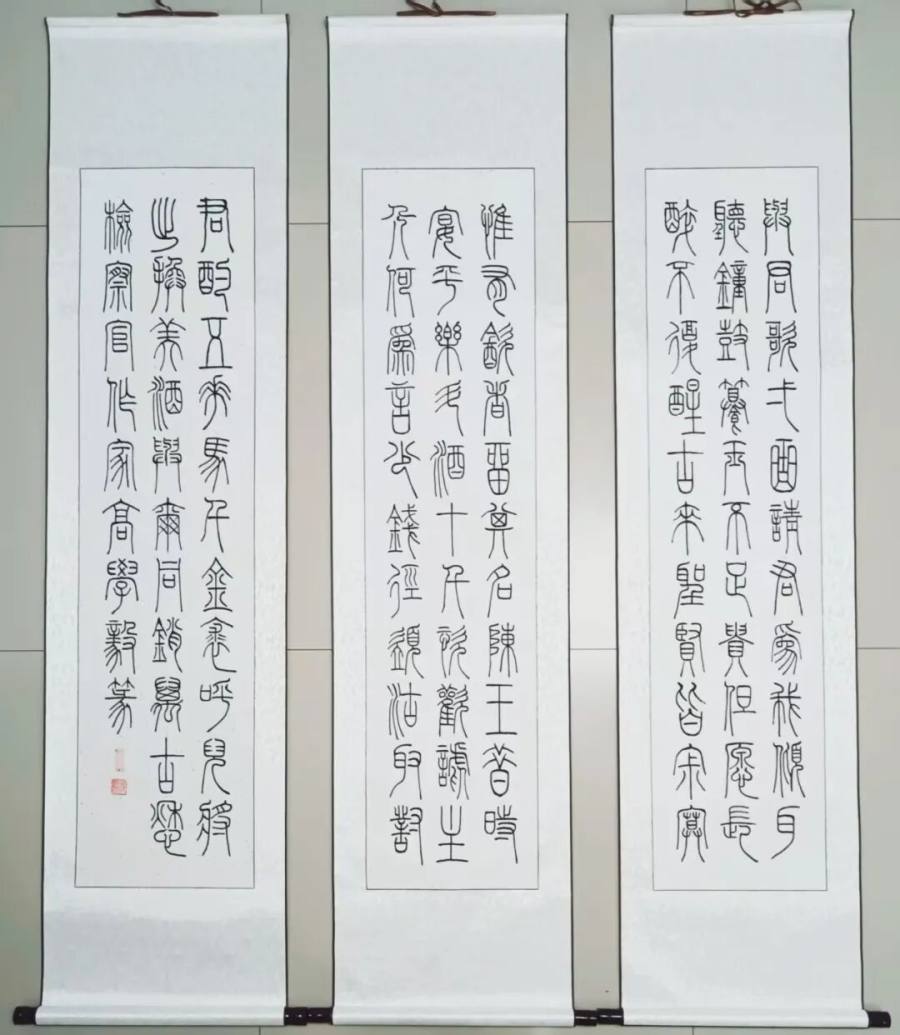 與同歌弌曲請君為我傾耳
聽鐘鼓饌玉不足貴但愿長
醉不復醒古來聖賢皆寂寞
惟有飲者留其名陳王昔時
宴平樂斗酒十千恣歡謔主
人何為言少錢徑須沽取對
君酌五花馬千金裘呼兒將
出換美酒與爾同銷萬古愁
檢察官作家高學毅篆